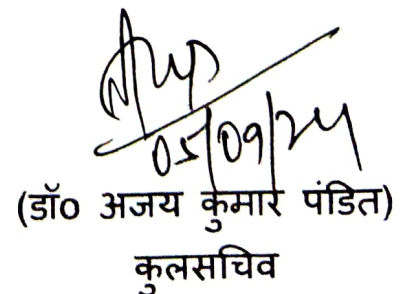 05/09/24
(डॉ० अजय कुमार पंडित)
कुलसचिव